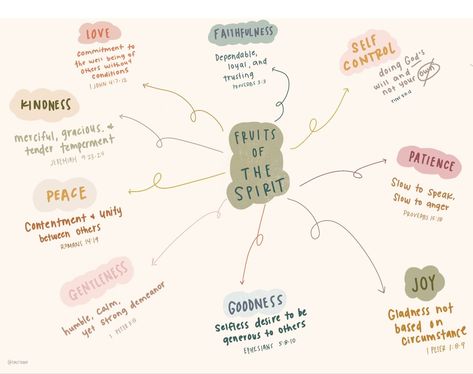 LOVE
commitment to
the well being of
others without
conditions
1 JOHN 4:7-12
FAITHFULNESS
Dependable,
loyal, and
trusting
PROVERBS 3:3
SELF
CONTROL
doing God's
will and
not your own
KINDNESS
merciful, gracious, &
tender temperment
JEREMIAH 9:23-24
FRUITS
OF
THE
SPIRIT
PATIENCE
Slow to speak,
Slow to anger
PROVERBS 15:18
PEACE
Contentment & unity
between others
ROMANS 14:19
GENTLENESS
humble, calm,
yet strong demeanor
GOODNESS
Selfless desire to be
generous to others
EPHESIANS 5:8-10
JOY
Gladness not
based on
circumstance
1 PETER 1:8-9